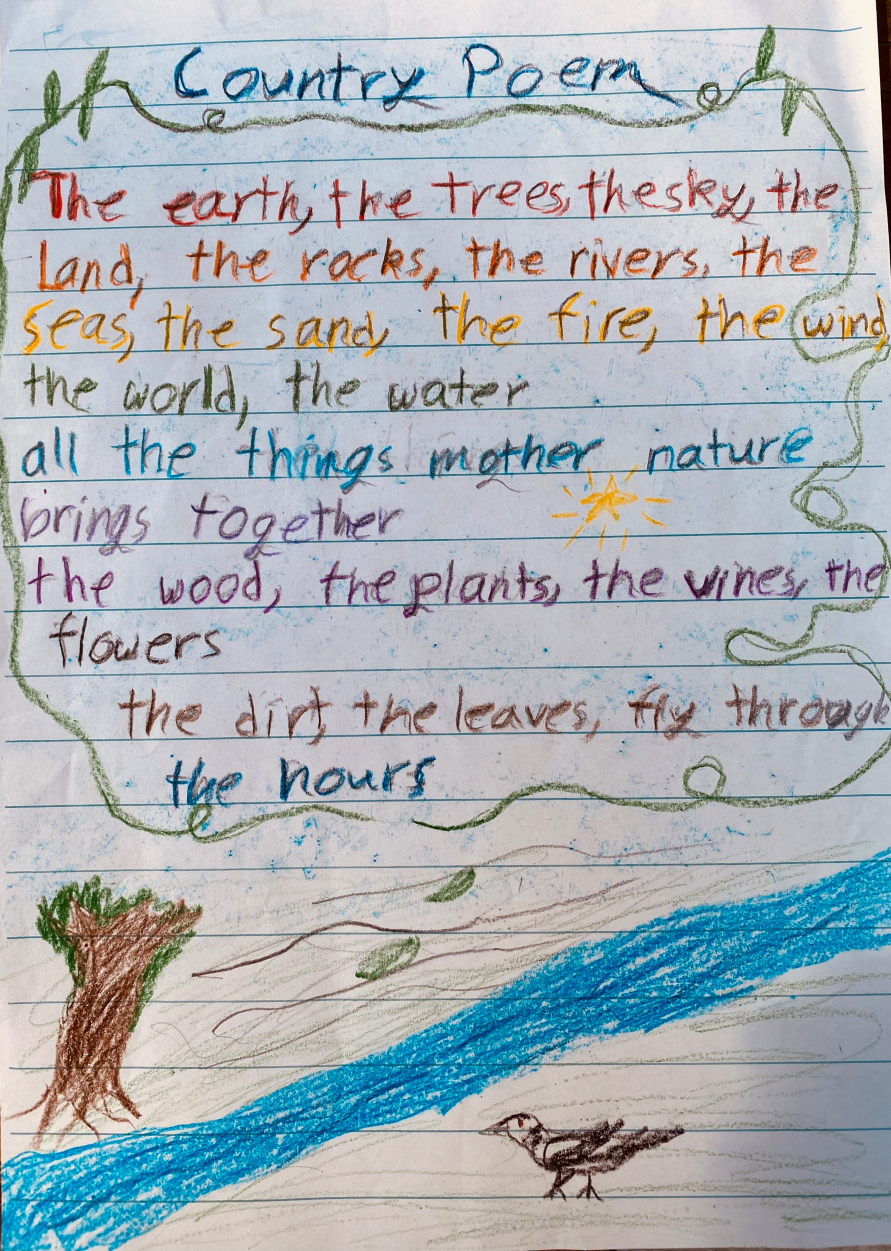 Country Poem
The earth, the trees, the sky, the
Land, the rocks, the rivers, the
seas, the sand, the fire, the wind,
the world, the water
all the things mother nature
brings together
the wood, the plants, the vines, the
flowers
the dirt, the leaves, fly through
the hours